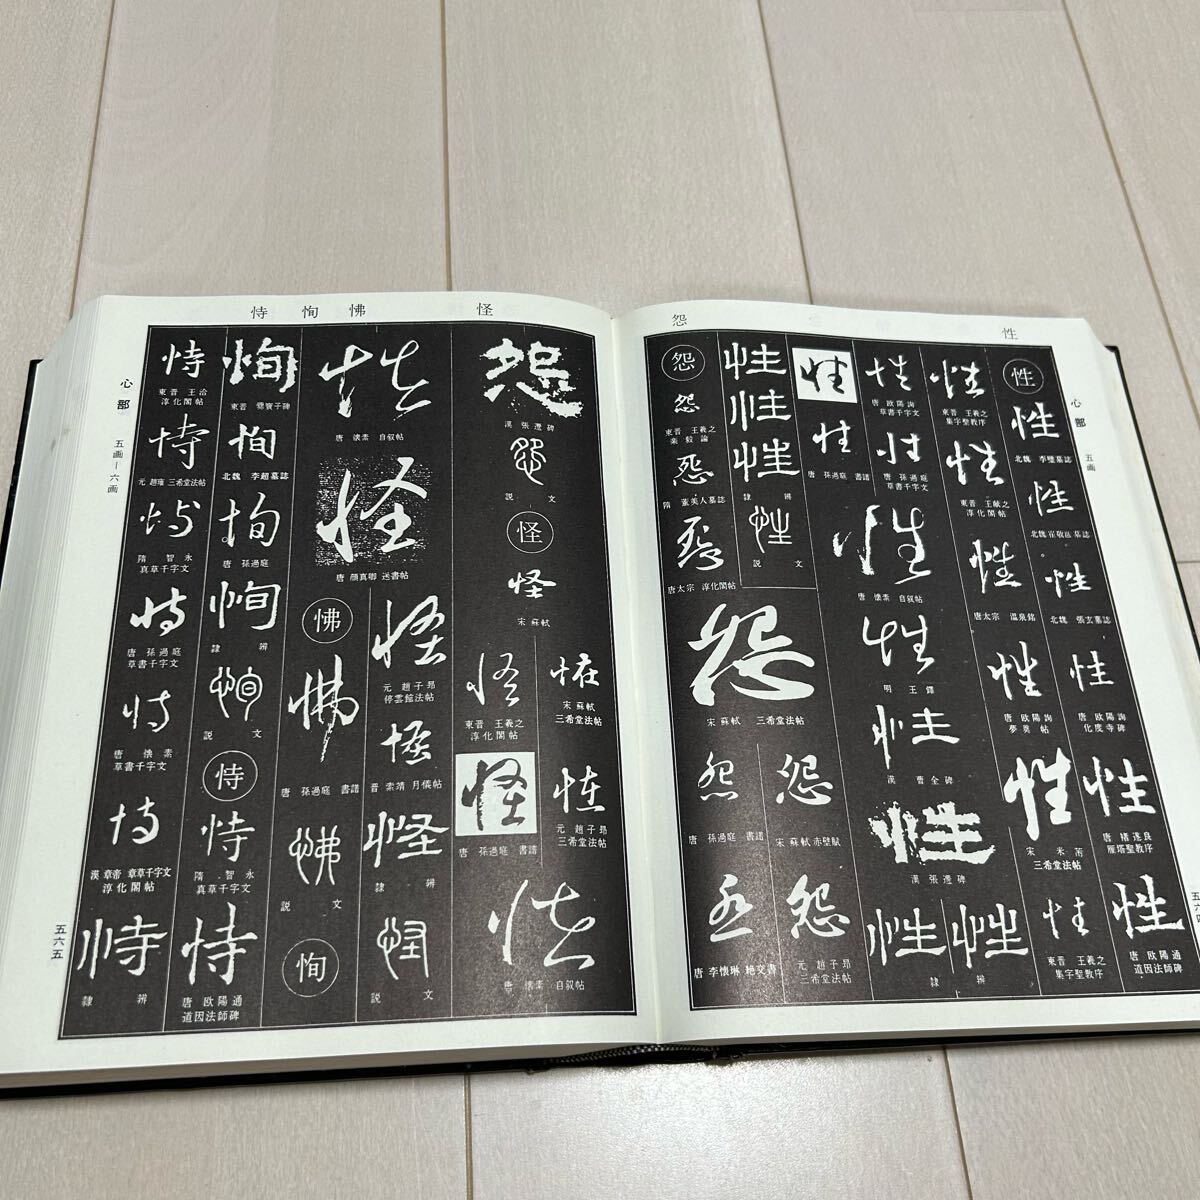 性
心部
五画
性
性
北魏 李璧墓誌
性
北魏 崔敬邕墓誌
性
北魏 張玄墓誌
性
唐 欧陽詢
化度寺碑
性
唐 褚遂良
雁塔聖教序
性
唐 欧陽通
道因法師碑
性
東晋 王羲之
集字聖教序
性
東晋 王献之
淳化閣帖
性
唐太宗 温泉銘
性
唐 欧陽詢
夢奠帖
性
宋 米芾
三希堂法帖
性
東晋 王羲之
集字聖教序
性
唐 欧陽詢
草書千字文
性
唐 孫過庭
草書千字文
性
唐 懐素 自叙帖
性
明 王鐸
性
漢 曹全碑
性
漢 張遷碑
性
性
隷辨
性
性
唐 孫過庭 書譜
性
性
性
隷辨
性
説文
怨
怨
怨
東晋 王羲之
楽毅論
怨
隋 董美人墓誌
怨
唐太宗 淳化閣帖
怨
宋 蘇軾 三希堂法帖
怨
宋 蘇軾 赤壁賦
怨
元 趙子昂
三希堂法帖
怨
唐 孫過庭 書譜
怨
唐 李懐琳 絶交書
怪
怨
漢 張遷碑
怨
説文
怪
怪
宋 蘇軾
怪
宋 蘇軾
三希堂法帖
怪
元 趙子昂
三希堂法帖
怪
東晋 王羲之
淳化閣帖
怪
唐 孫過庭 書譜
怪
唐 懐素 自叙帖
怪
唐 懐素 自叙帖
怪
唐 顔真卿 送書帖
怪
元 趙子昂
停雲館法帖
怪
晋 索靖 月儀帖
怪
隷辨
怪
説文
怫
怫
怫
唐 孫過庭 書譜
怫
説文
恂
恂
恂
東晋 爨宝子碑
恂
北魏 李超墓誌
恂
唐 孫過庭
恂
隷辨
恂
説文
恃
恃
恃
隋 智永
真草千字文
恃
唐 欧陽通
道因法師碑
恃
東晋 王洽
淳化閣帖
恃
元 趙雍 三希堂法帖
恃
隋 智永
真草千字文
恃
唐 孫過庭
草書千字文
恃
唐 懐素
草書千字文
恃
漢 章帝 章草千字文
淳化閣帖
恃
隷辨
心部
五画—六画
五六五